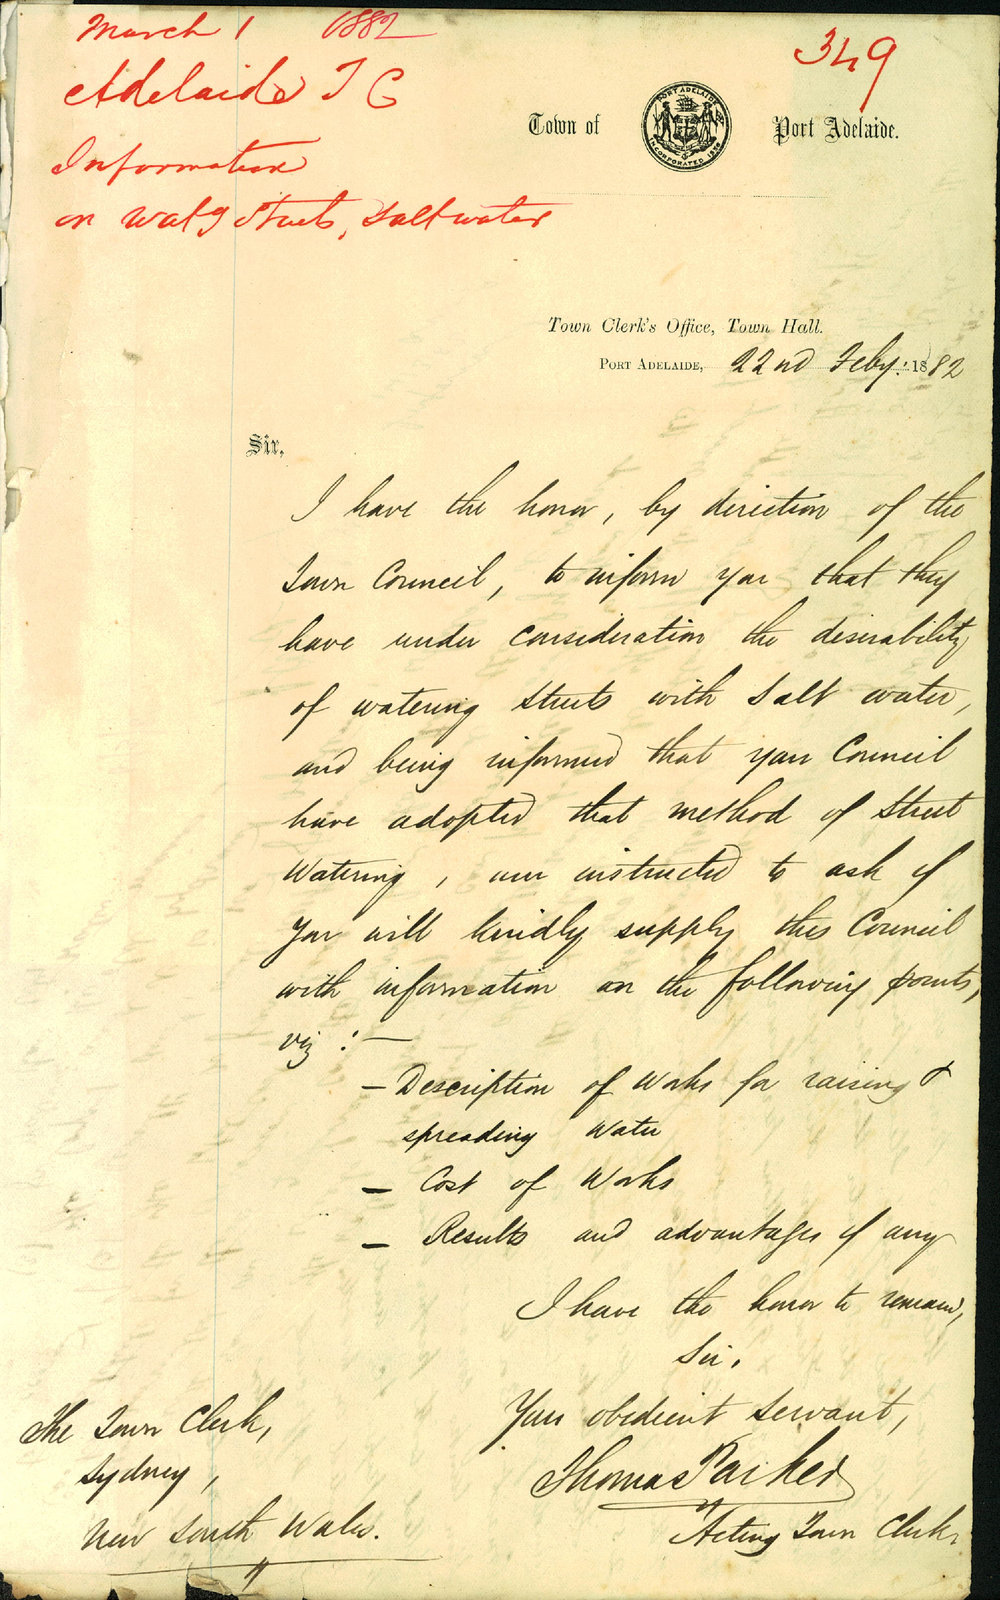 March 1 1882
349
Adelaide T C
Information
on Watg Streets, Salt water
Town of Port Adelaide.
PORT ADELAIDE
INCORPORATED 1856
Town Clerk's Office, Town Hall.
PORT ADELAIDE, 22nd Feby: 1882
Sir,
I have the honor, by direction of the
Town Council, to inform you that they
have under consideration the desirability
of watering Streets with Salt water,
and being informed that your Council
have adopted that method of Street
Watering, am instructed to ask if
you will kindly supply this Council
with information on the following points,
viz :—
— Description of Works for raising &
spreading Water
— Cost of Works
— Results and advantages if any
I have the honor to remain,
Sir,
Your obedient Servant,
Thomas Parker
Acting Town Clerk.
The Town Clerk,
Sydney,
New South Wales.